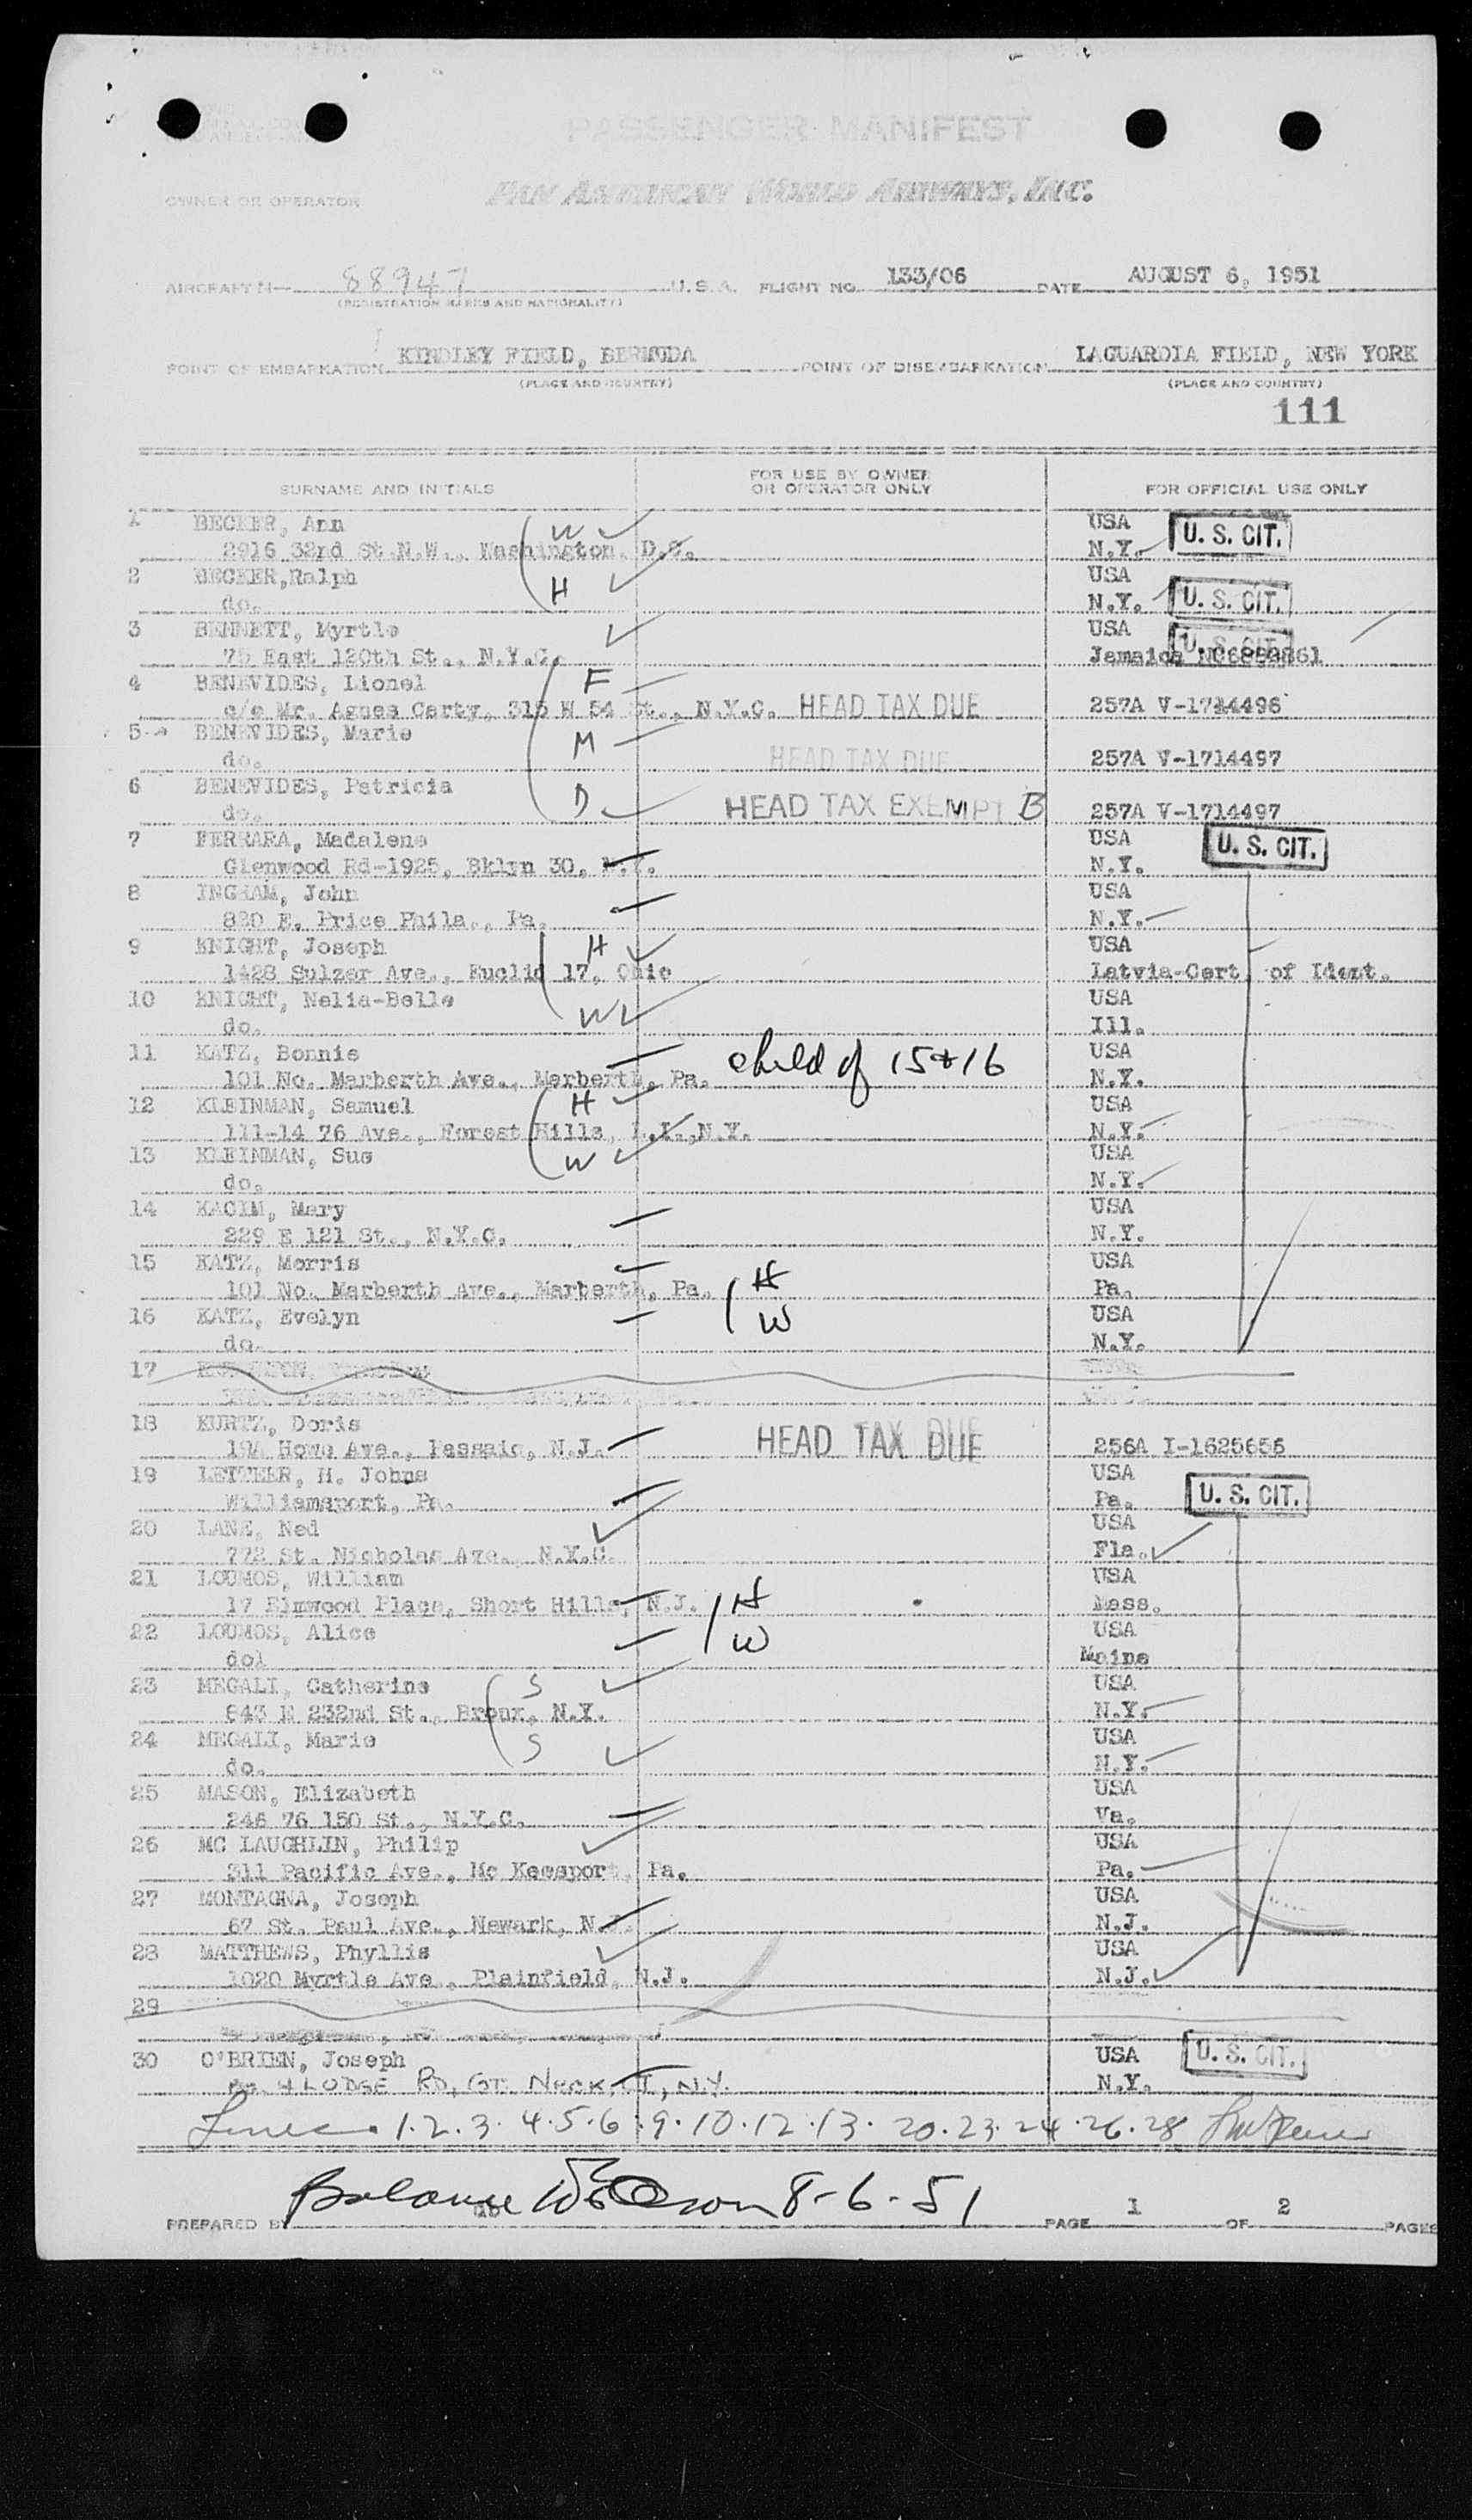 PASSENGER MANIFEST
OWNER OR OPERATOR PAN AMERICAN WORLD AIRWAYS, INC.
AIRCRAFT N— 88947 U.S.A. FLIGHT NO. 133/06 DATE AUGUST 6, 1951
(REGISTRATION MARKS AND NATIONALITY)
POINT OF EMBARKATION KINDLEY FIELD, BERMUDA POINT OF DISEMBARKATION LAGUARDIA FIELD, NEW YORK
(PLACE AND COUNTRY) (PLACE AND COUNTRY)
111
SURNAME AND INITIALS FOR USE BY OWNER OR OPERATOR ONLY FOR OFFICIAL USE ONLY
1 BECKER, Ann W USA U. S. CIT.
2916 32rd St.N.W., Washington, D.C. N.Y.
2 BECKER,Ralph H USA
do. N.Y. U. S. CIT.
3 BENNETT, Myrtle USA U. S. CIT.
75 East 120th St., N.Y.C. Jamaica
4 BENEVIDES, Lionel F
c/o Mr. Agnes Carty, 315 W 54 St., N.Y.C. HEAD TAX DUE 257A V-1714496
5 BENEVIDES, Marie M
do. HEAD TAX DUE 257A V-1714497
6 BENEVIDES, Patricia D
do. HEAD TAX EXEMPT B 257A V-1714497
7 FERRARA, Madalene USA U. S. CIT.
Glenwood Rd-1925, Bklyn 30, N.Y. N.Y.
8 INGHAM, John USA
820 E. Price Phila., Pa. N.Y.
9 KNIGHT, Joseph H USA
1428 Sulzer Ave., Euclid 17, Ohio Latvia-Cert. of Ident.
10 KNIGHT, Nelia-Belle W USA
do. Ill.
11 KATZ, Bonnie child of 15+16 USA
101 No. Marberth Ave., Marberth, Pa. N.Y.
12 KLEINMAN, Samuel H USA
111-14 76 Ave., Forest Hills, L.I.,N.Y. N.Y.
13 KLEINMAN, Sue W USA
do. N.Y.
14 KACIM, Mary USA
229 E 121 St., N.Y.C. N.Y.
15 KATZ, Morris H USA
101 No. Marberth Ave., Marberth, Pa. Pa.
16 KATZ, Evelyn W USA
do. N.Y.
17
18 KURTZ, Doris HEAD TAX DUE
19A Howe Ave., Passaic, N.J. 256A I-1625656
19 H. Johns USA
Williamsport, Pa. Pa. U. S. CIT.
20 LANE, Ned USA
772 St. Nicholas Ave., N.Y.C. Fla.
21 LOUMOS, William H USA
17 Elmwood Place, Short Hills, N.J. Mass.
22 LOUMOS, Alice W USA
dol Maine
23 MEGALI, Catherine S USA
843 E 232nd St., Bronx, N.Y. N.Y.
24 MEGALI, Marie S USA
do. N.Y.
25 MASON, Elizabeth USA
246 76 150 St., N.Y.C. Va.
26 MC LAUGHLIN, Philip USA
311 Pacific Ave., Mc Keesport, Pa. Pa.
27 MONTAGNA, Joseph USA
67 St. Paul Ave., Newark, N.J. N.J.
28 MATTHEWS, Phyllis USA
1020 Myrtle Ave., Plainfield, N.J. N.J.
29
30 O'BRIEN, Joseph USA U. S. CIT.
4 LODGE RD, GT. NECK, N.Y. N.Y.
Lines 1.2.3.4.5.6.9.10.12.13.20.23.24.26.28
Balance 8-6-51
PREPARED BY PAGE 1 OF 2 PAGES